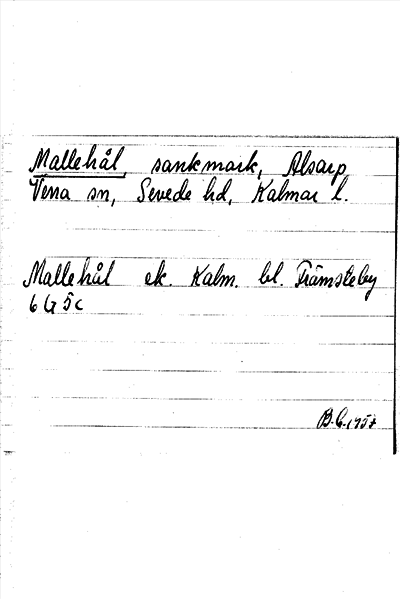 Mallehål, sankmark, Alsarp,
Vena sn, Sevede hd, Kalmar l.
Mallehål ek. Kalm. bl. Främsteby
6 G 5 c
B.G. 1957